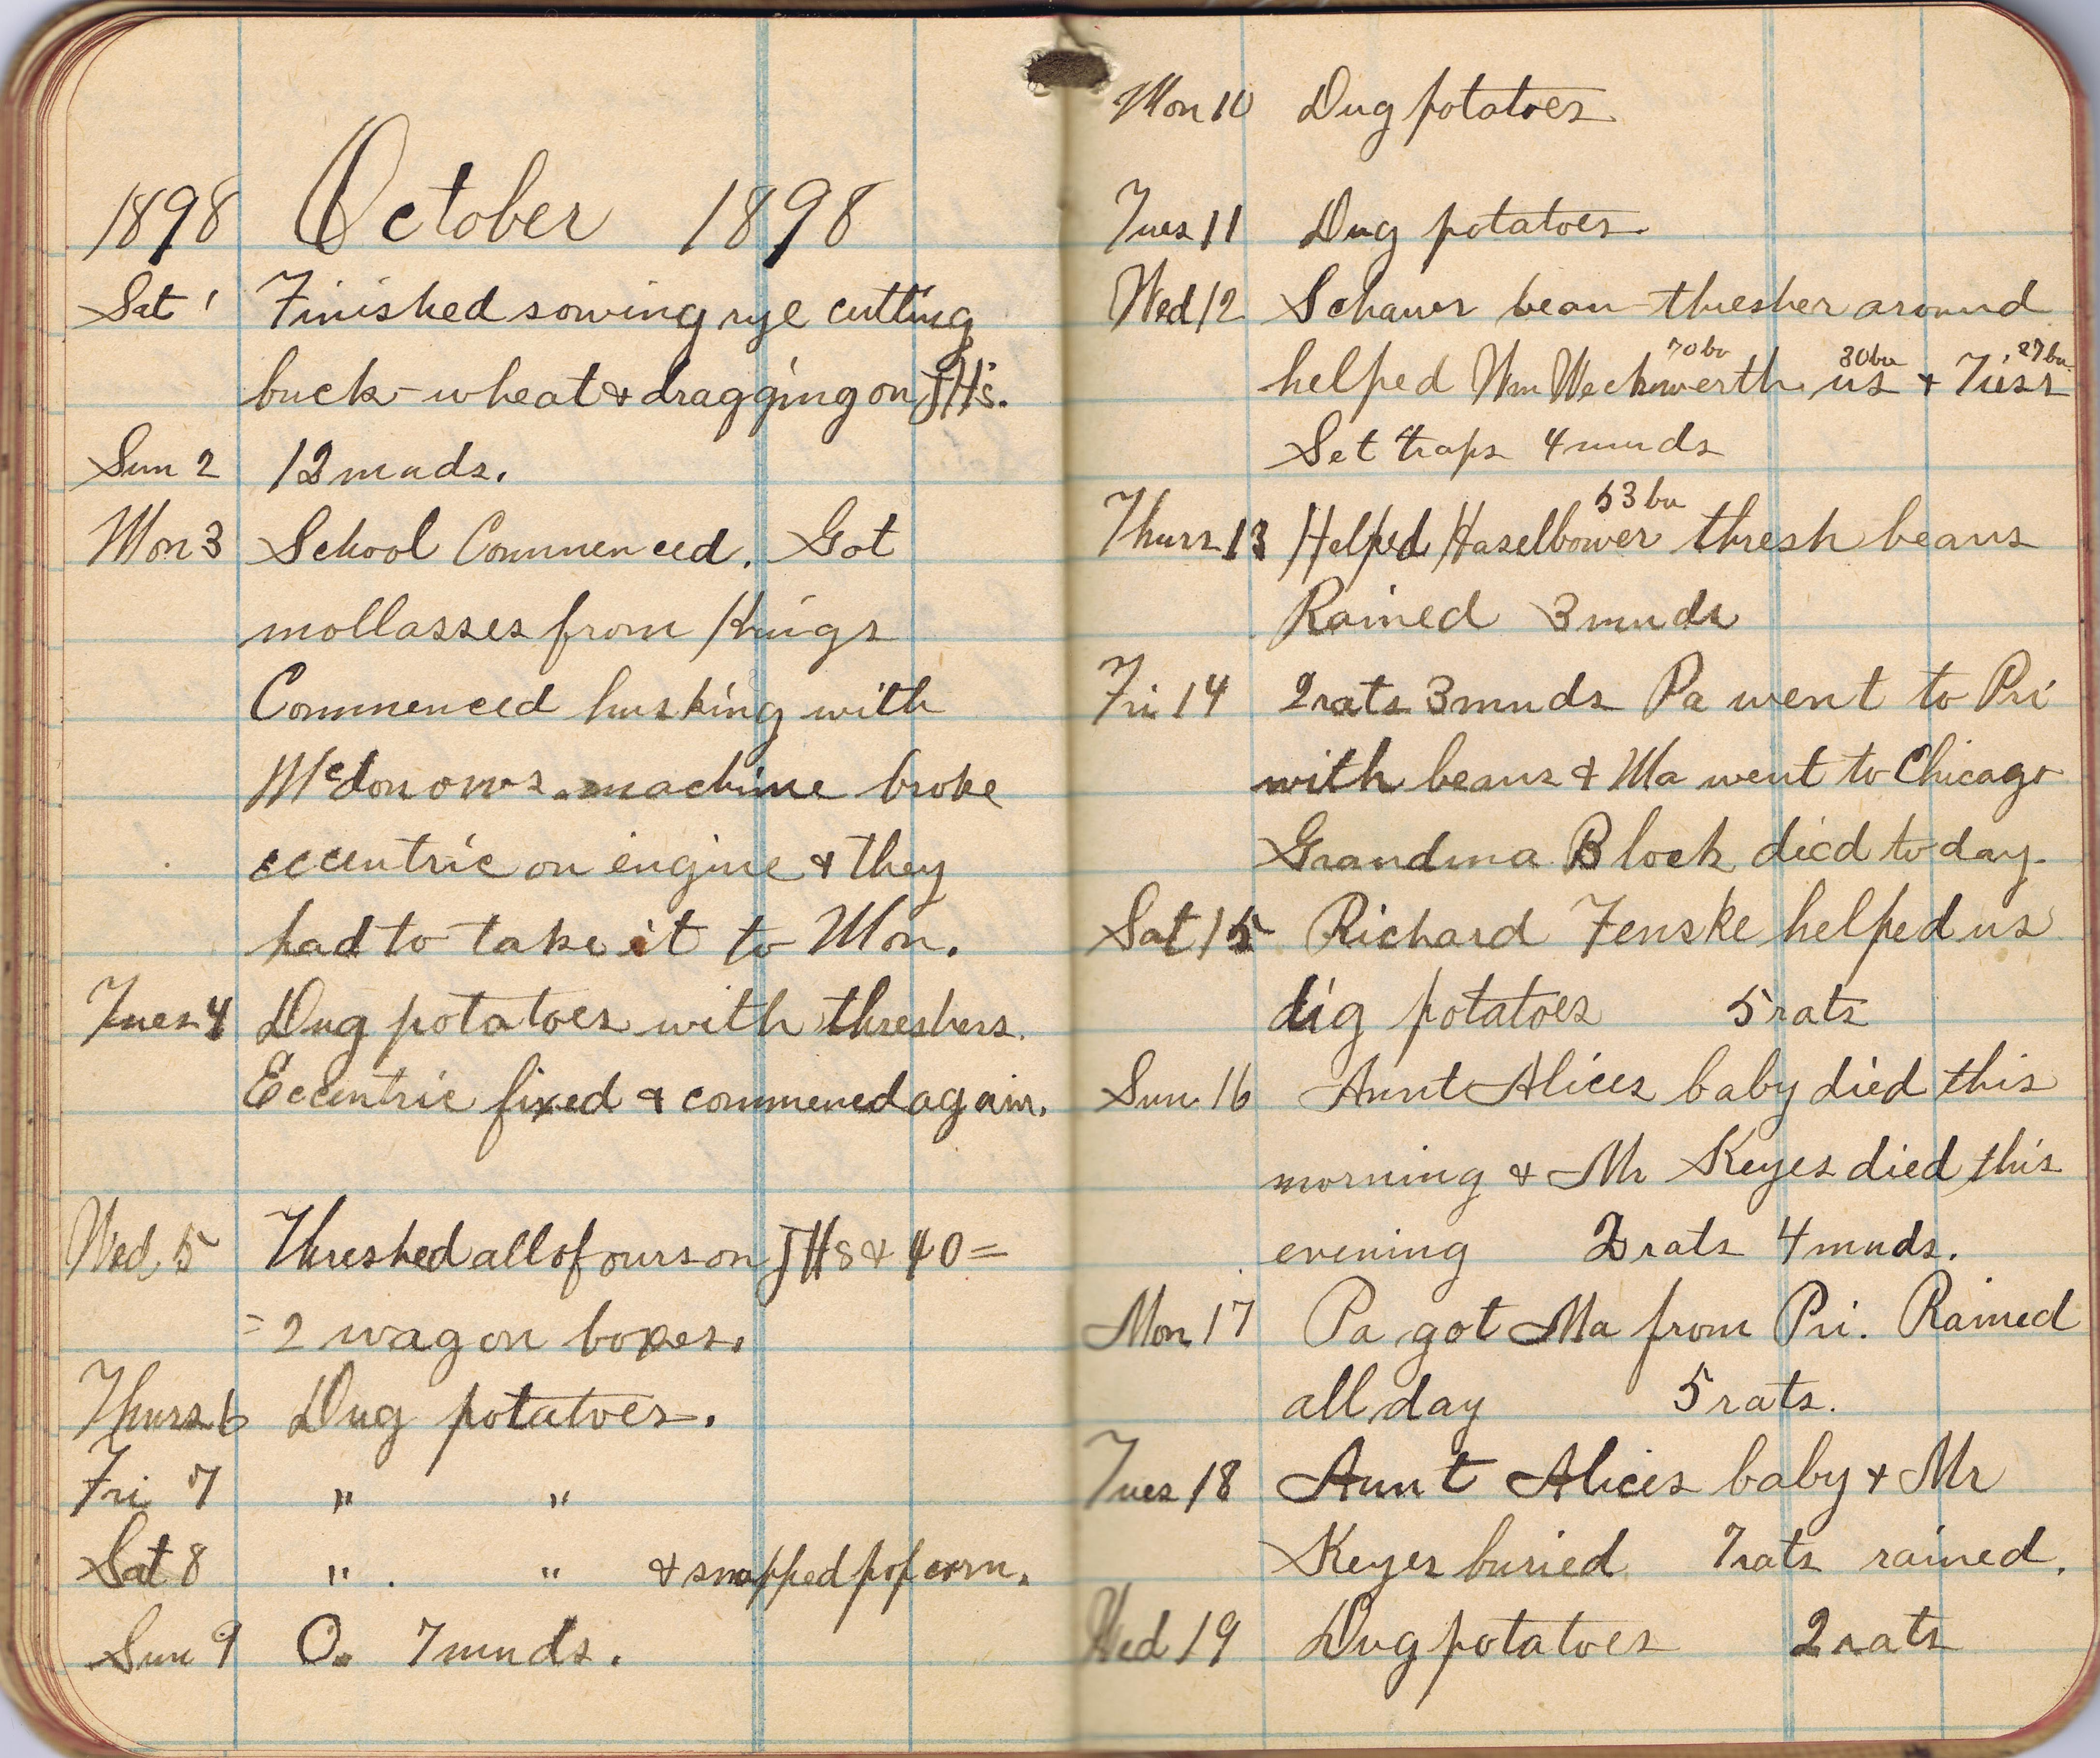 1898 October 1898
Sat 1 Finished sowing rye cutting
buck-wheat & dragging on JH's.
Sun 2 12 muds.
Mon 3 School Commenced. Got
mollasses from Kings
Commenced husking with
machine broke
eccentric on engine & they
had to take it to Mon.
Tues 4 Dug potatoes with threshers.
Eccentric fixed & commened again.
Wed. 5 Threshed all of ours on JH8 & 40=
=2 wagon boxes.
Thurs 6 Dug potatoes.
Fri 7 " "
Sat 8 " . " & snapped popcorn.
Sun 9 O. 7 muds.
Mon 10 Dug potatoes
Tues 11 Dug potatoes.
Wed 12 bean thresher around
70 bu 30 bu 27 bu
helped Wm Weckwerth us &
Set traps 4 muds
53 bu
Thurs 13 Helped Haselbower thresh beans
Rained 3 muds
Fri 14 2 rats 3 muds Pa went to Pri
with beans & Ma went to Chicago
Grandma Block died to day.
Sat 15 Richard Fenske helped us
dig potatoes 5 rats
Sun. 16 Aunt Alices baby died this
morning & Mr Keyes died this
evening 2 rats 4 muds.
Mon 17 Pa got Ma from Pri. Rained
all day 5 rats.
Tues 18 Aunt Alices baby & Mr
Keyes buried 7 rats rained.
Wed 19 Dug potatoes 2 rats